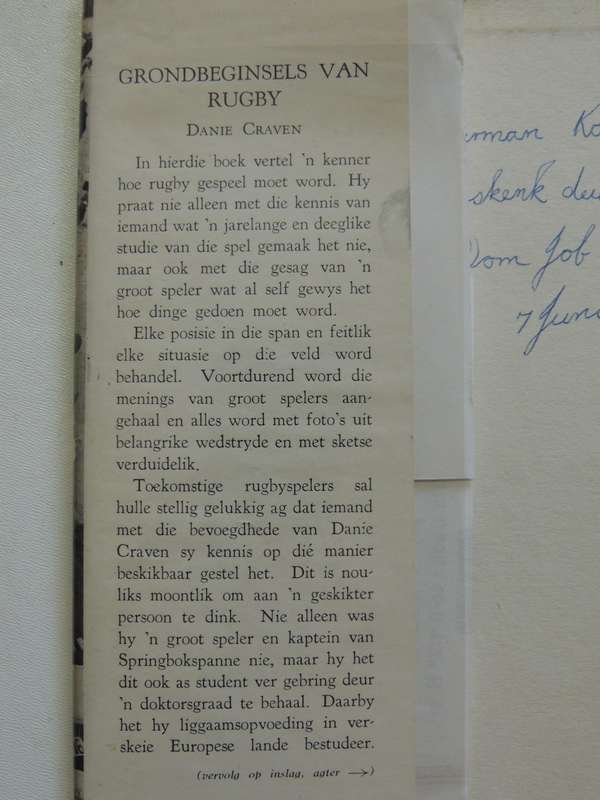 GRONDBEGINSELS VAN
RUGBY
DANIE CRAVEN
In hierdie boek vertel 'n kenner
hoe rugby gespeel moet word. Hy
praat nie alleen met die kennis van
iemand wat 'n jarelange en deeglike
studie van die spel gemaak het nie,
maar ook met die gesag van 'n
groot speler wat al self gewys het
hoe dinge gedoen moet word.
Elke posisie in die span en feitlik
elke situasie op die veld word
behandel. Voortdurend word die
menings van groot spelers aan-
gehaal en alles word met foto's uit
belangrike wedstryde en met sketse
verduidelik.
Toekomstige rugbyspelers sal
hulle stellig gelukkig ag dat iemand
met die bevoegdhede van Danie
Craven sy kennis op dié manier
beskikbaar gestel het. Dit is nou-
liks moontlik om aan 'n geskikter
persoon te dink. Nie alleen was
hy 'n groot speler en kaptein van
Springbokspanne nie, maar hy het
dit ook as student ver gebring deur
'n doktorsgraad te behaal. Daarby
het hy liggaamsopvoeding in ver-
skeie Europese lande bestudeer.
(vervolg op inslag, agter →)
skenk
Job
7